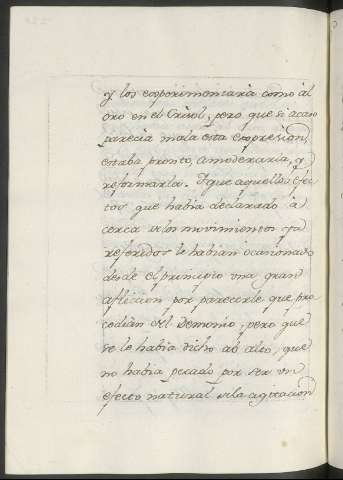 y los esperimentaria como al
oro en el Crisol; pero que si acaso
parecia mala esta expresion,
estaba pronto, a moderarla, y
reformarla. Y que aquellos efec
tos que habia declarado a
cerca de los movimientos ya
referidos le habian ocasionado
desde el principio una gran
afliccion por parecerle que pro
codian del Demonio; pero que
se le habia dicho ab alto, que
no habia pecado por ser un
efecto natural de la agitacion